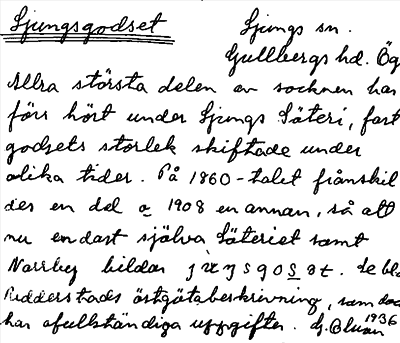 Ljungsgodset
Ljungs sn.
Gullbergs hd. Ög
Allra största delen av socknen har
förr hört under Ljungs Säteri, fast
godsets storlek skiftade under
olika tider. På 1860-talet frånskil
des en del o 1908 en annan, så att
nu endast själva Säteriet samt
Norrby bildar
Se bl.a
Ridderstads östgötabeskrivning, som dock
har ofullständiga uppgifter. G. Blum 1936